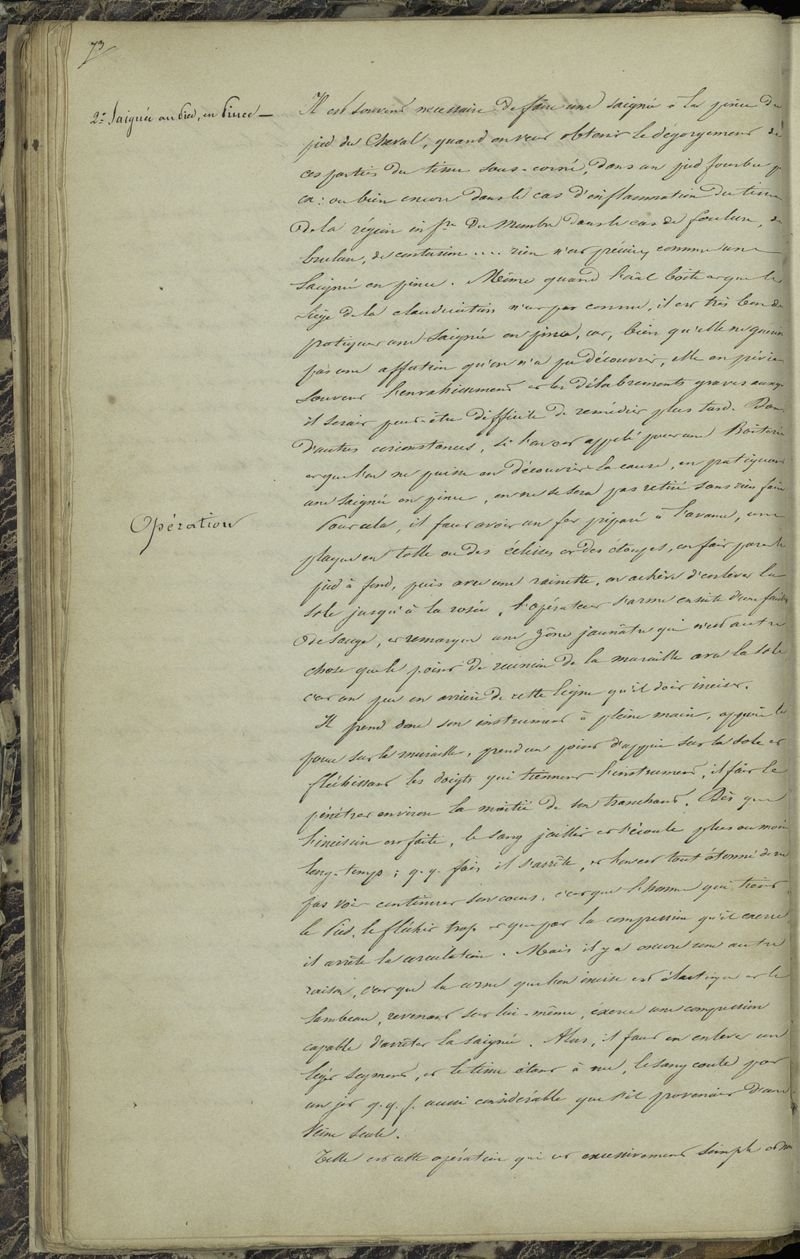 73
2° Saignée au Pied, en Pince —
Il est souvent necessaire de faire une saignée à la pince du
pied du Cheval, quand on veut obtenir le dégorgement de
ces parties du tissu sous-corné, dans un pied fourbu
ca: ou bien encore dans le cas d'inflammation du tissu
de la région inf.re du membre dans le cas de foulure, de
brulure, de contusion .... rien n'est précieux comme une
Saignée en pince. Même quand l'a'al boite et que le
siège de la claudication n'est pas connu, il est très bon de
pratiquer une saignée en pince, car, bien qu'elle ne guérisse
pas une affection qu'on n'a pu découvrir, elle en prévient
souvent l'envahissement et les délabrements graves auxq
il serait peut-être difficile de remédier plus tard. Dans
d'autres circonstances, si l'on est appelé pour une Boiterie
et que l'on ne puisse en découvrir la cause, en pratiquant
une saignée en pince, on ne se sera pas retiré sans rien faire
Opération
Pour cela, il faut avoir un fer préparé à l'avance, une
plaque en tolle ou des éclisses et des étoupes, on fait parer le
pied à fond, puis avec une rainette, on achève d'enlever la
sole jusqu'à la rosée, l'opérateur s'arme ensuite d'une feuille
de sauge, et remarque une zône jaunâtre qui n'est autre
chose que le point de reunion de la muraille avec la sole
c'est un peu en arrière de cette ligne qu'il doit inciser.
Il prend donc son instrument à pleine main, appuie le
pouce sur la muraille, prend un point d'appui sur la sole et
fléchissant les doigts qui tiennent l'instrument, il fait le
pénétrer environ la moitié de son tranchant. Dès que
l'incision est faite, le sang jaillit et s'écoule plus ou moins
long-temps; q.q. fois il s'arrête, et l'on est tout étonné de ne
pas voir continuer son cours. c'est que l'homme qui tient
le Pied, le fléchit trop et que par la compression qu'il exerce
il arrête la circulation. Mais il y a encore une autre
raison, c'est que la corne que l'on incise est élastique et le
lambeau, revenant sur lui-même, exerce une compression
capable d'arrêter la saignée. Alors, il faut en enlever un
léger segment, et le tissu étant à nu, le sang coule par
un jet q.q.f. aussi considérable que s'il provenait d'une
Veine seule.
Telle est cette opération qui est excessivement simple et